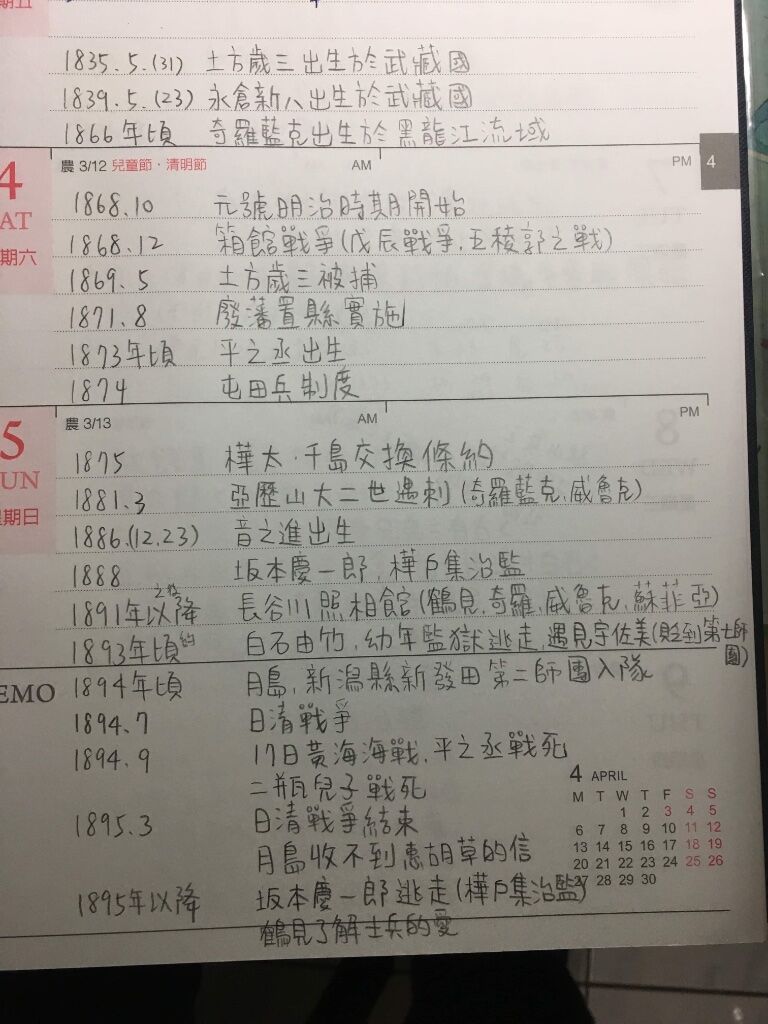 期五
1835.5.(31) 土方歲三出生於武藏國
1839.5.(23) 永倉新八出生於武藏國
1866年頃 奇羅藍克出生於黑龍江流域
4
農 3/12 兒童節・清明節 AM PM 4
AT
期六
1868.10 元號明治時期開始
1868.12 箱館戰爭(戊辰戰爭.五稜郭之戰)
1869.5 土方歲三被捕
1871.8 廢藩置縣實施
1873年頃 平之丞出生
1874 屯田兵制度
5
農 3/13 AM PM
UN
星期日
1875 樺太.千島交換條約
1881.3 亞歷山大二世遇刺(奇羅藍克.威魯克)
1886.(12.23) 音之進出生
1888 坂本慶一郎.樺戶集治監
1891年以降 長谷川照相館(鶴見.奇羅.威魯克.蘇菲亞)
1893年頃約 白石由竹.幼年監獄逃走.遇見宇佐美(貶到第七師團)
EMO
1894年頃 月島.新潟縣新發田第二師團入隊
1894.7 日清戰爭
1894.9 17日黃海海戰.平之丞戰死
二瓶兒子戰死
1895.3 日清戰爭結束
月島收不到惠胡草的信
1895年以降 坂本慶一郎逃走(樺戶集治監)
鶴見了解士兵的愛
4 APRIL
M T W T F S S
1 2 3 4 5
6 7 8 9 10 11 12
13 14 15 16 17 18 19
20 21 22 23 24 25 26
27 28 29 30